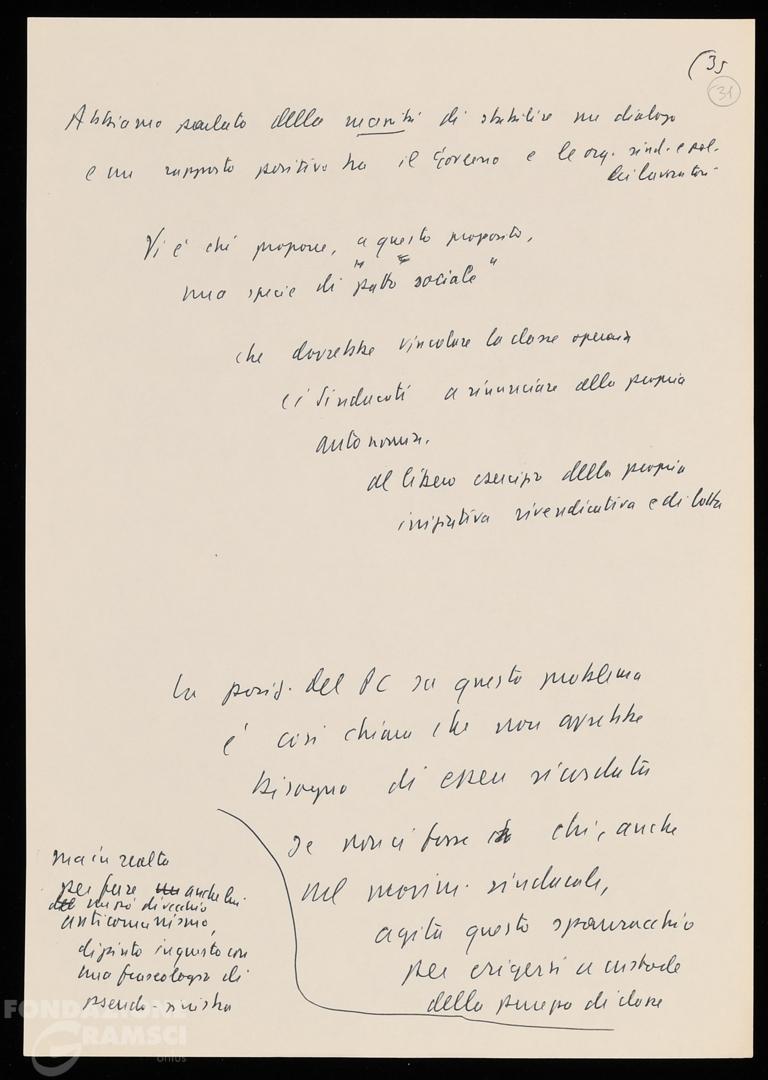 (35
31
Abbiamo parlato della di stabilire un dialogo
e un rapporto positivo tra il Governo e le org. sind. e pol.
dei lavoratori
Vi è chi propone, a questo proposito,
una specie di "patto sociale"
che dovrebbe vincolare la classe operaia
e i Sindacati a rinunciare alla propria
autonomia,
al libero esercizio della propria
iniziativa rivendicativa e di lotta
La posiz. del PC su questo problema
è così chiara che non avrebbe
bisogno di essere ricordata
se non ci fosse chi, anche
nel movim. sindacale,
agita questo spauracchio
per erigersi a custode
della purezza di classe
ma in realtà
per fare anche lui
un po' di vecchio
anticomunismo,
dipinto in questo con
una fraseologia di
pseudo-sinistra
FONDAZIONE
GRAMSCI
onlus